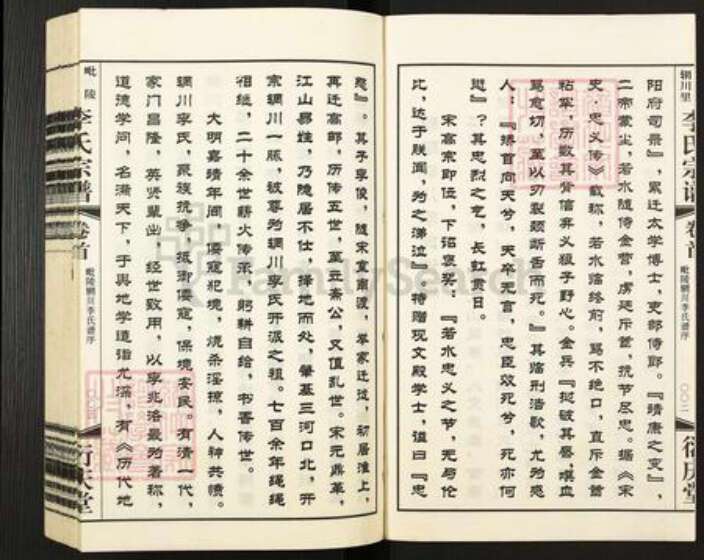 辋川里 李氏宗谱 卷首 毗陵辋川李氏谱序 〇〇二 衍庆堂
阳府司录』,累迁太学博士,吏部侍郎。『靖康之变』,
二帝蒙尘,若水随侍金营,虏廷斥酋,抗节尽忠。据《宋
史·忠义传》载称,若水临终前,骂不绝口,直斥金酋
粘罕,历数其背信弃义狼子野心。金兵『挝破其唇,噀血
骂愈切,至以刃裂颈断舌而死。』其临刑浩歌,尤为感
人:『矫首问天兮,天卒无言,忠臣效死兮,死亦何
愆』?其忠烈之气,长虹贯日。
宋高宗即位,下诏褒奖:『若水忠义之节,无与伦
比,达于朕闻,为之涕泣』特赠观文殿学士,谥曰『忠
愍』。其子李俊,随宋室南渡,举家迁过,初居淮上,
再迁高邮,历传五世,至元斋公,又值乱世。宋元鼎革,
江山易姓,乃隐居不仕,择地而处,肇基三河口北,开
宗辋川一脉,被尊为辋川李氏开派之祖。七百余年绳绳
相继,二十余世薪火传承,躬耕自给,书香传世。
大明嘉靖年间,倭寇犯境,烧杀淫掠,人神共愤。
辋川李氏,聚族抗争,抵御倭寇,保境安民。有清一代,
家门昌隆,英贤辈出,经世致用,以李兆洛最为著称,
道德学问,名满天下,于舆地学造诣尤深,有《历代地
毗陵 李氏宗谱 卷首 毗陵辋川李氏谱序 衍庆堂
FamilySearch